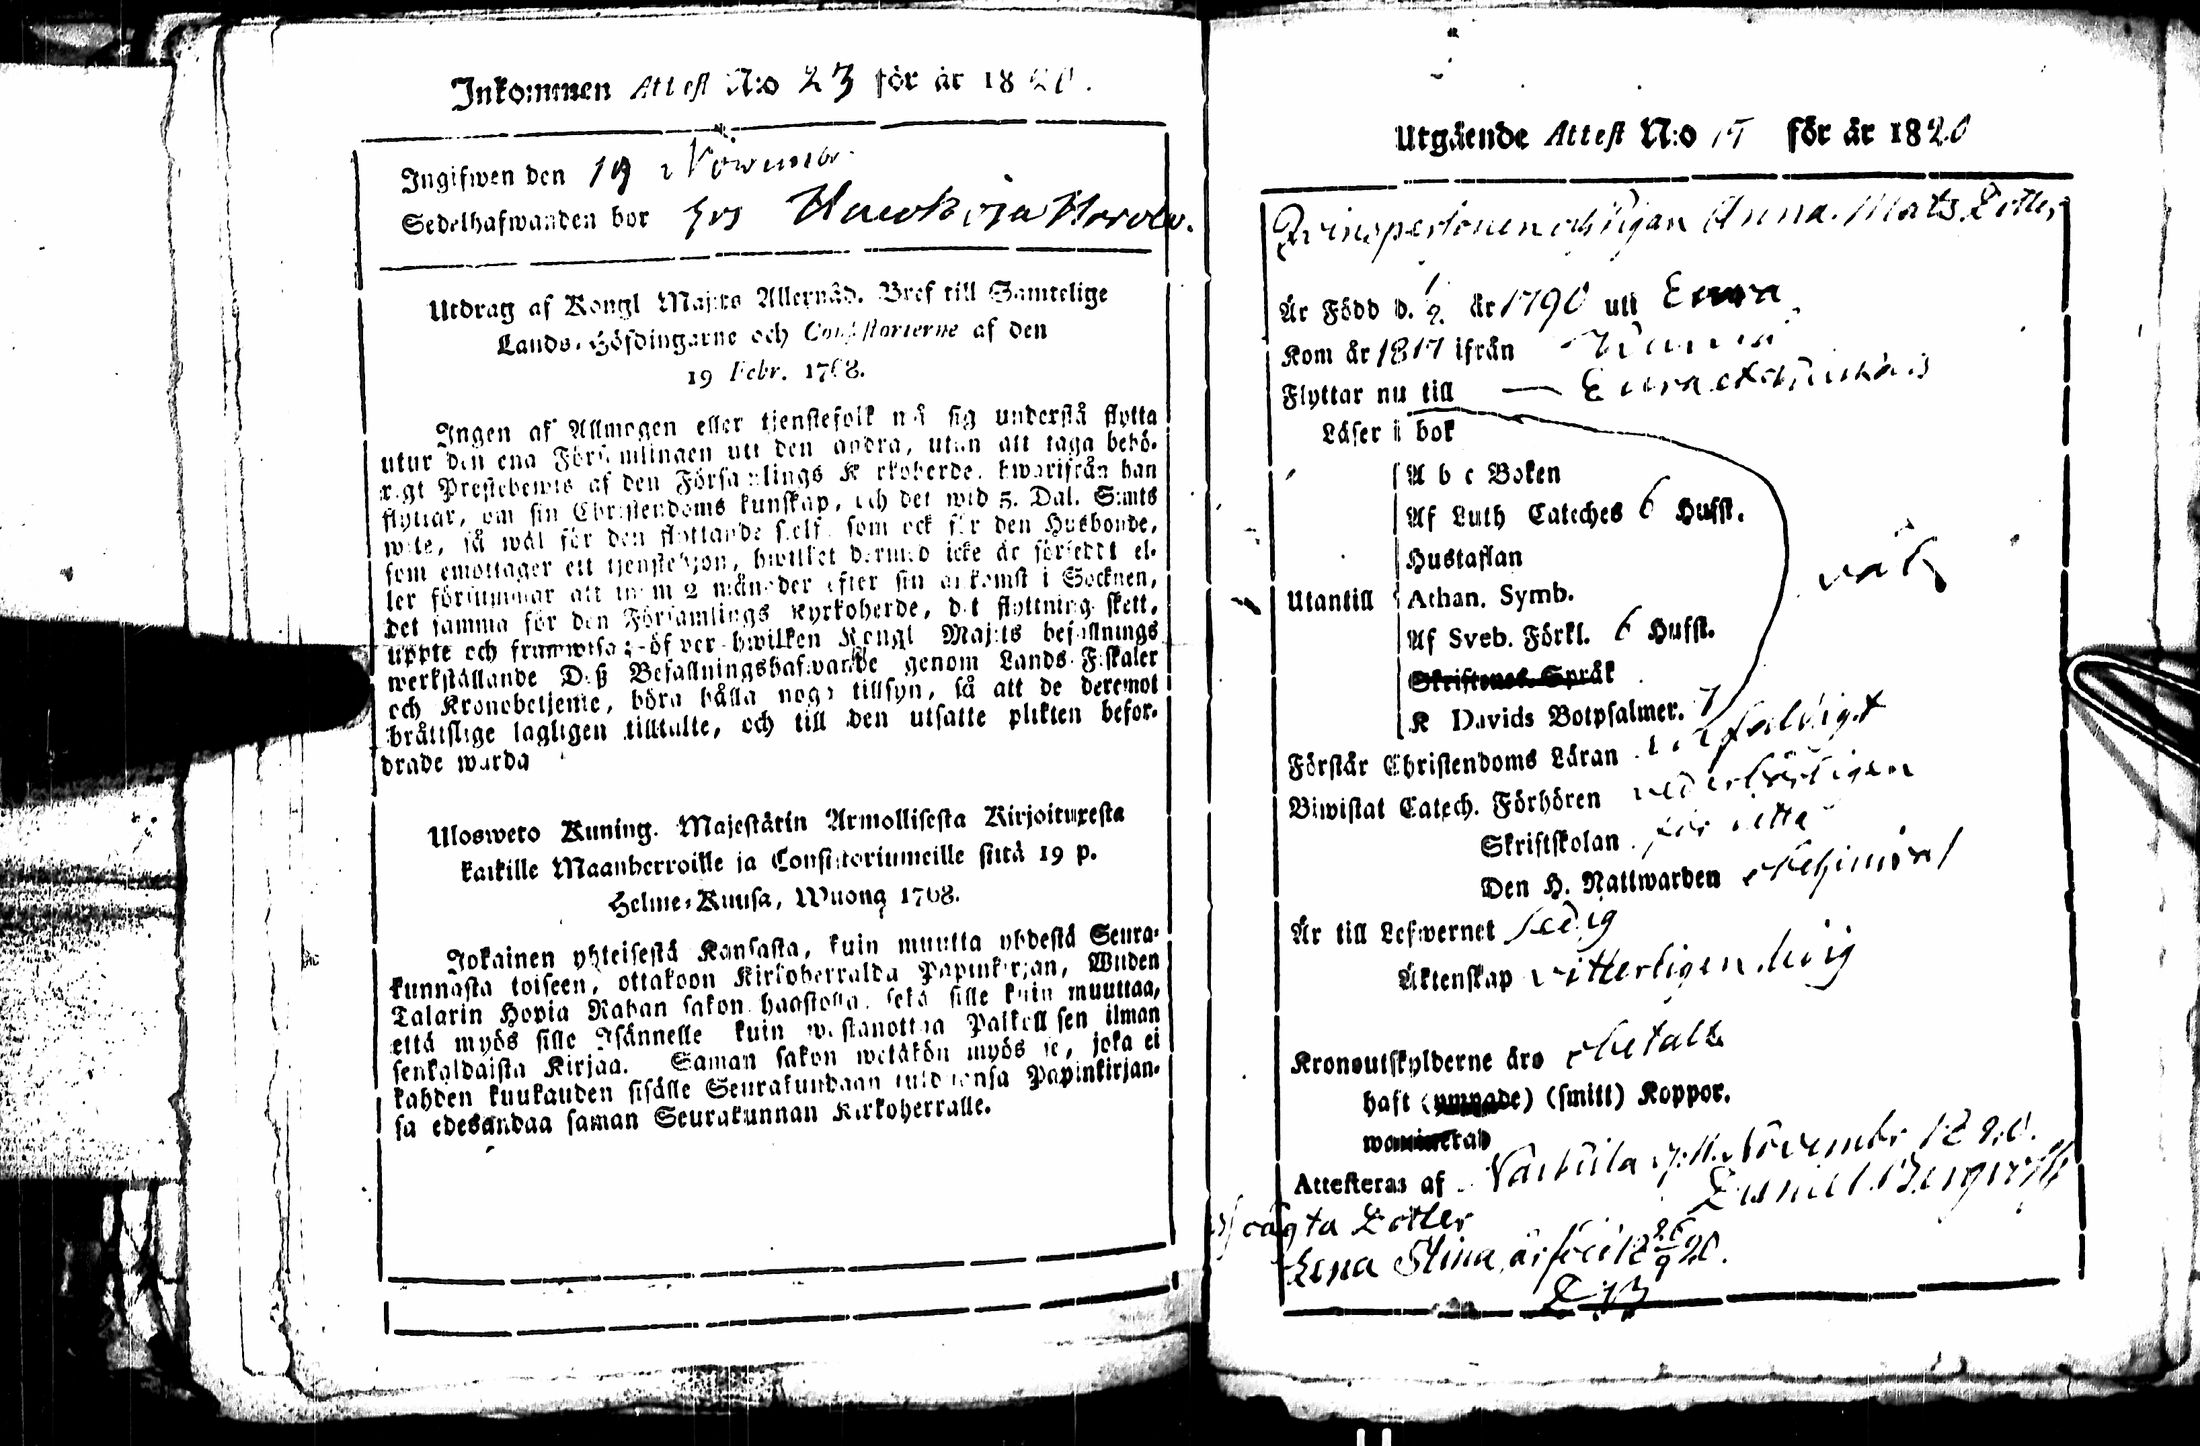 Inkommen Attest N:o 23 för år 1820.
Ingifwen den 19 Novembr.
Sedelhafwanden bor hos
Utdrag af Kongl Maj:ts Allernåd. Bref till Samtelige
Lands-Höfdingarne och Consistorierne af den
19 Febr. 1768.
Ingen af Allmogen eller tjenstefolk må sig understå flytta
utur den ena Församlingen uti den andra, utan att taga behö-
rigt Prestebewis af den Församlings Kyrkoherde, hwarifrån han
flyttar, om sin Christendoms kunskap, och det wid 5. Dal. S:mts
wite, så wäl för den flyttande sjelf, som ock för den Husbonde,
som emottager ett tjenstehjon, hwilket dermed icke är försedt el-
ler försummar att inom 2 månader efter sin ankomst i Socknen,
det samma för den Församlings Kyrkoherde, dit flyttning skett,
uppte och framwisa; öfwer hwilken Kongl Maj:ts befallnings
werkställande Deß Befallningshafwande genom Lands-Fiskaler
och Kronobetjente, böra hålla noga tillsyn, så att de deremot
bråttslige lagligen tilltalte, och till den utsatte plikten befor-
drade warda
Ulosweto Kuning. Majestätin Armollisesta Kirjoituxesta
kaikille Maanherroille ja Consistoriumeille siitä 19 p.
Helme-Kuusa, Wuona 1768.
Jokainen yhteisestä Kansasta, kuin muutta yhdestä Seura-
kunnasta toiseen, ottakoon Kirkoherralda Papinkirjan, Wiiden
Talarin Hopia Rahan sakon haastolla, sekä sille kuin muuttaa,
että myös sille Isännelle kuin wastanottaa Palkollisen ilman
senkaldaista Kirjaa. Saman sakon wetäkön myös se, joka ei
kahden kuukauden sisälle Seurakundaan tulduansa Papinkirjan-
sa edesandaa saman Seurakunnan Kirkoherralle.
Utgående Attest N:o för år 1820
Qvinspersonen och Pigan Anna Mats Dotter
Är Född d. 1/2 år 1790 uti Eura
Kom år 1817 ifrån
Flyttar nu till — Eura
Läser i bok
A b c Boken
Af Luth Cateches 6 Hufst.
Hustaflan
Utantill Athan. Symb.
Af Sveb. Förkl. 6 Hufst.
Skriftenes Språk
K Davids Botpsalmer. 7
väl
Förstår Christendoms Läran enfaldigt
Biwistat Catech. Förhören vederbörligen
Skriftskolan för detta
Den H. Nattwarden
Är till Lefwernet sedig
Äktenskap vitterligen ledig
Kronoutskylderne äro obetalte
haft (ympade) (smitt) Koppor.
waccinerad
Attesteras af Novembr 1820.
Daniel Bergroth
oägta Dotter
Lena Stina, är född 18 26/9 20.